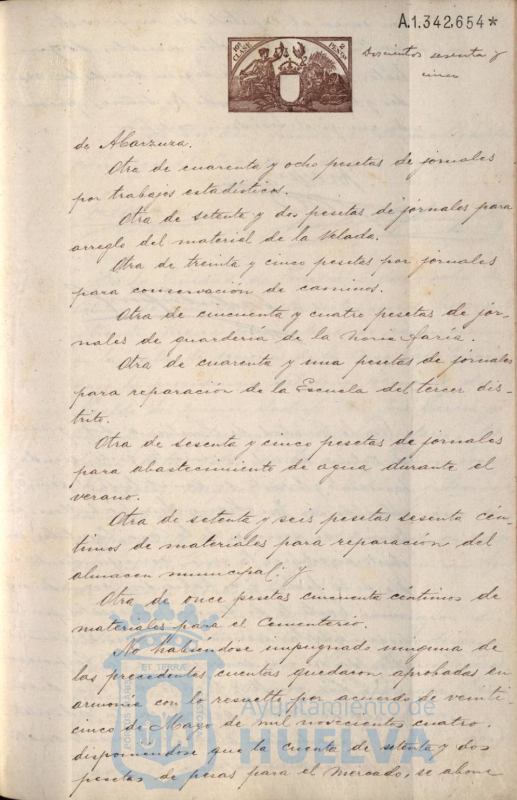 A.1.342.654*
10ª CLASE 2 PESETAS
Doscientos sesenta y
cinco
de Abarzuza.
Otra de cuarenta y ocho pesetas de jornales
por trabajos estadísticos.
Otra de setenta y dos pesetas de jornales para
arreglo del material de la Velada.
Otra de treinta y cinco pesetas por jornales
para conservación de caminos.
Otra de cincuenta y cuatro pesetas de jor-
nales de guardería de la Noria
Otra de cuarenta y una pesetas de jornales
para reparación de la Escuela del tercer dis-
trito.
Otra de sesenta y cinco pesetas de jornales
para abastecimiento de agua durante el
verano.
Otra de setenta y seis pesetas sesenta cén-
timos de materiales para reparación del
almacen municipal; y
Otra de once pesetas cincuenta céntimos de
materiales para el Cementerio.
No habiéndose impugnado ninguna de
las precedentes cuentas quedaron aprobadas en
armonía con lo resuelto por acuerdo de veinti-
cinco de Mayo de mil novecientos cuatro.
disponiéndose que la cuenta de setenta y dos
pesetas de pesas para el Mercado, se abone
ET TERRAE
Ayuntamiento de
HUELVA